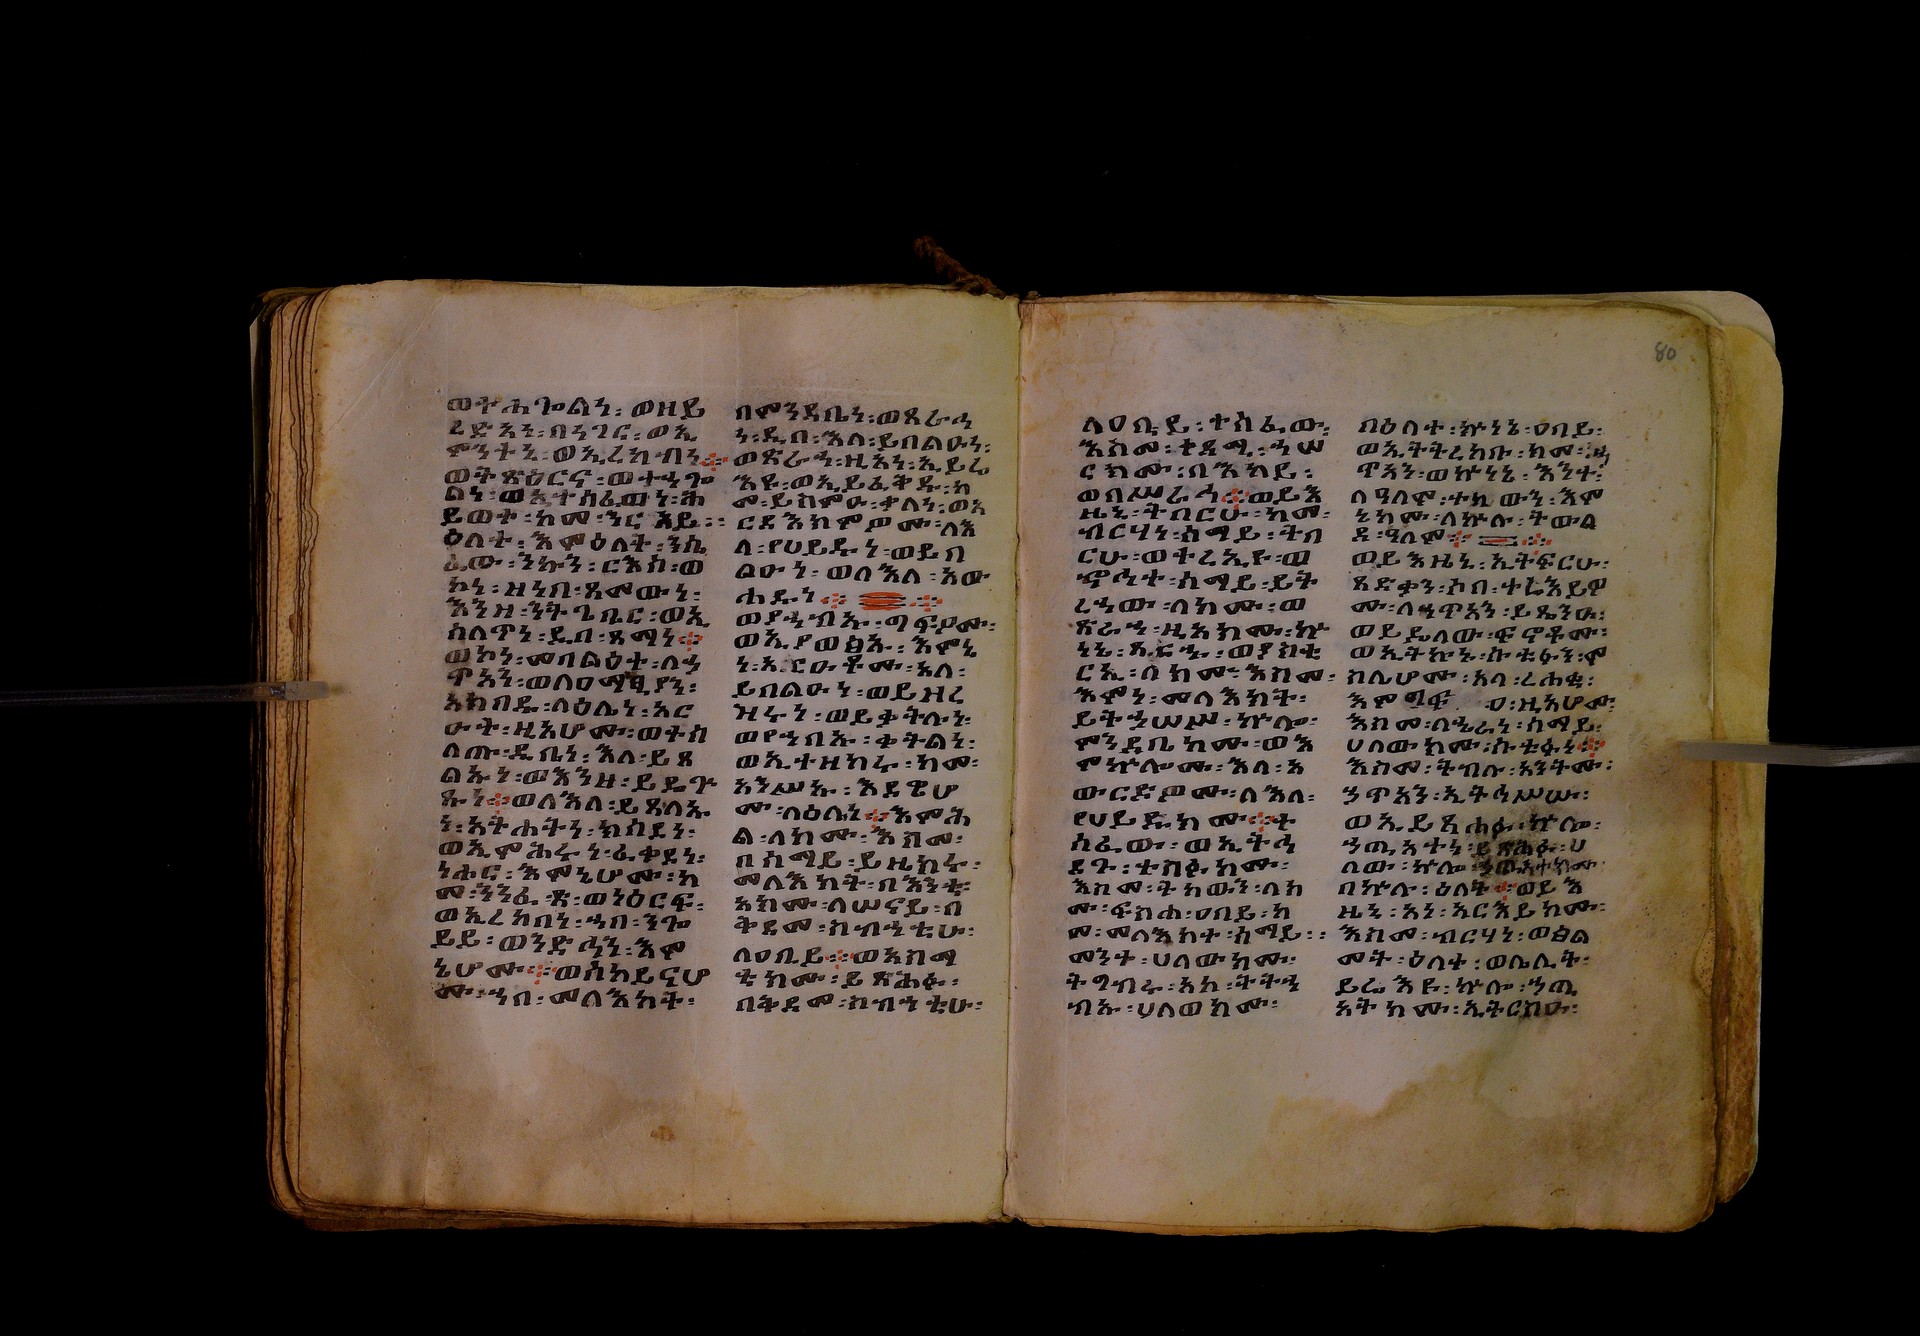 ወተሐጐልነ፡ ወዘይ
ረድአነ፡ በነገር፡ ወኢ
ምንተኒ፡ ወኢረከብነ፨
ወተጽዕርና፡ ወተኃጐ
ልነ፡ ወኢተሰፈወነ፡ ሕ
ይወተ፡ ከመ፡ ንርአይ፡
ዕለተ፡ እምዕለት፡ ንሴ
ፈው፡ ንኩን፡ ርእሰ፡ ወ
ኮነ፡ ዘነበ፡ ጻመውነ፡
እንዘ፡ ንትጌበር፡ ወኢ
ሰለጥነ፡ ዲበ፡ ጻማነ፨
ወኮነ፡ መብልዕተ፡ ለኃ
ጥአን፡ ወለዐማፂያን፡
አክበዱ፡ ላዕሌነ፡ አር
ዑተ፡ ዚአሆሙ፡ ወተሰ
ለጡ፡ ዲቤነ፡ እለ፡ ይጸ
ልኡነ፡ ወእንዘ፡ ይዴጕ
ጹነ፨ ወለእለ፡ ይጸልኡ
ነ፡ አትሐትነ፡ ክሳደነ፡
ወኢምሕሩነ፡ ፈቀደነ፡
ንሑር፡ እምኔሆሙ፡ ከ
መ፡ ንንፈጽ፡ ወነዕርፍ፡
ወኢረከብነ፡ ኀበ፡ ንጐ
ይይ፡ ወንድኃን፡ እም
ኔሆሙ፨ ወሰከይናሆ
ሙ፡ ኀበ፡ መላእክት፡
በምንዳቤነ፡ ወጸራኅ
ነ፡ ዲበ፡ እለ፡ ይበልዑነ፡
ወጽራኀ፡ ዚአነ፡ ኢይሬ
እዩ፡ ወኢይፈቅዱ፡ ከ
መ፡ ይስምዑ፡ ቃለነ፡ ወእ
ርደእክምዎሙ፡ ለእ
ለ፡ የሀይዱነ፡ ወይበ
ልዑነ፡ ወለእለ፡ አው
ሐዱነ፨
ወያኀብኡ፡ ግፍዖሙ፡
ወኢያወፅኡ፡ እምኔ
ነ፡ አርዑቶሙ፡ አላ፡
ይበልዑነ፡ ወይዘረ
ዝሩነ፡ ወይቀትሉነ፡
ወየኀብኡ፡ ቀትልነ፡
ወኢተዘከሩ፡ ከመ፡
አንሥኡ፡ እደዊሆ
ሙ፡ ላዕሌነ፨ እምሕ
ል፡ ለክሙ፡ እስመ፡
በሰማይ፡ ይዜከሩ፡
መላእክት፡ በእንቲ
አክሙ፡ ለሠናይ፡ በ
ቅደመ፡ ስብሓቲሁ፡
ለዐቢይ፨ ወአስማ
ቲክሙ፡ ይጸሐፉ፡
በቅደመ፡ ስብሓቲሁ፡
ለዐቢይ፡ ተሰፈው፡
እስመ፡ ቀዳሚ፡ ኀሠ
ርክሙ፡ በእከይ፡
ወበሥራኅ፨ ወይእ
ዜኒ፡ ትበርሁ፡ ከመ፡
ብርሃነ፡ ሰማይ፡ ትበ
ርሁ፡ ወተረኢዩ፡ ወ
ኆኅተ፡ ሰማይ፡ ይት
ረኀው፡ ለክሙ፡ ወ
ጽራኀ፡ ዚአክሙ፡ ኵ
ነኔ፡ ጽርኁ፡ ወያስቲ
ርኢ፡ ለክሙ፡ እስመ፡
እምነ፡ መላእክት፡
ይትኃሠሥ፡ ኵሎ፡
ምንዳቤክሙ፡ ወእ
ምኵሎሙ፡ እለ፡ አ
ውርድዎሙ፡ ለእለ፡
የሀይዱክሙ፨ ተ
ሰፈው፡ ወኢትኅ
ድጉ፡ ተስፋክሙ፡
እስመ፡ ትከውን፡ ለክ
ሙ፡ ፍስሐ፡ ዐቢይ፡ ከ
መ፡ መላእክተ፡ ሰማይ፡
መንተ፡ ሀለወክሙ፡
ትግብሩ፡ አኮ፡ ትትኀ
ብኡ፡ ሀለወክሙ፡
በዕለተ፡ ኵነኔ፡ ዐባይ፡
ወኢትትረከቡ፡ ከመ፡ ኃ
ጥአን፡ ወኵነኔ፡ እንተ፡
ለዓለም፡ ተከውን፡ እም
ኔክሙ፡ ለኵሉ፡ ትውል
ደ፡ ዓለም፨
ወይእዜኒ፡ ኢትፍርሁ፡
ጻድቃን፡ ሶበ፡ ትሬእይዎ
ሙ፡ ለኃጥአን፡ ይጸንዑ፡
ወይዴለው፡ ፍኖቶሙ፡
ወኢትኩኑ፡ ሱቱፋነ፡ ም
ስሌሆሙ፡ አላ፡ ረሐቁ፡
እምግፍ፡ ዚአሆሙ፡
እስመ፡ ለኃይራነ፡ ሰማይ፡
ሀለወክሙ፡ ሱቱፋነ፨
እስመ፡ ትብሉ፡ አንትሙ፡
ኃጥአን፡ ኢትኅሥሡ፡
ወኢይጸሐፉ፡ ኵሎ፡
ኀጢአተነ፡ ይጽሕፉ፡ ሀ
ለው፡ ኵሎ፡
በኵሉ፡ ዕለት፨ ወይእ
ዜኒ፡ አነ፡ አርእየክሙ፡
እስመ፡ ብርሃነ፡ ወፅል
መት፡ ዕለተ፡ ወሌሊት፡
ይሬእዩ፡ ኵሎ፡ ኀጢ
አትክሙ፡ ኢትርስዑ፡
80